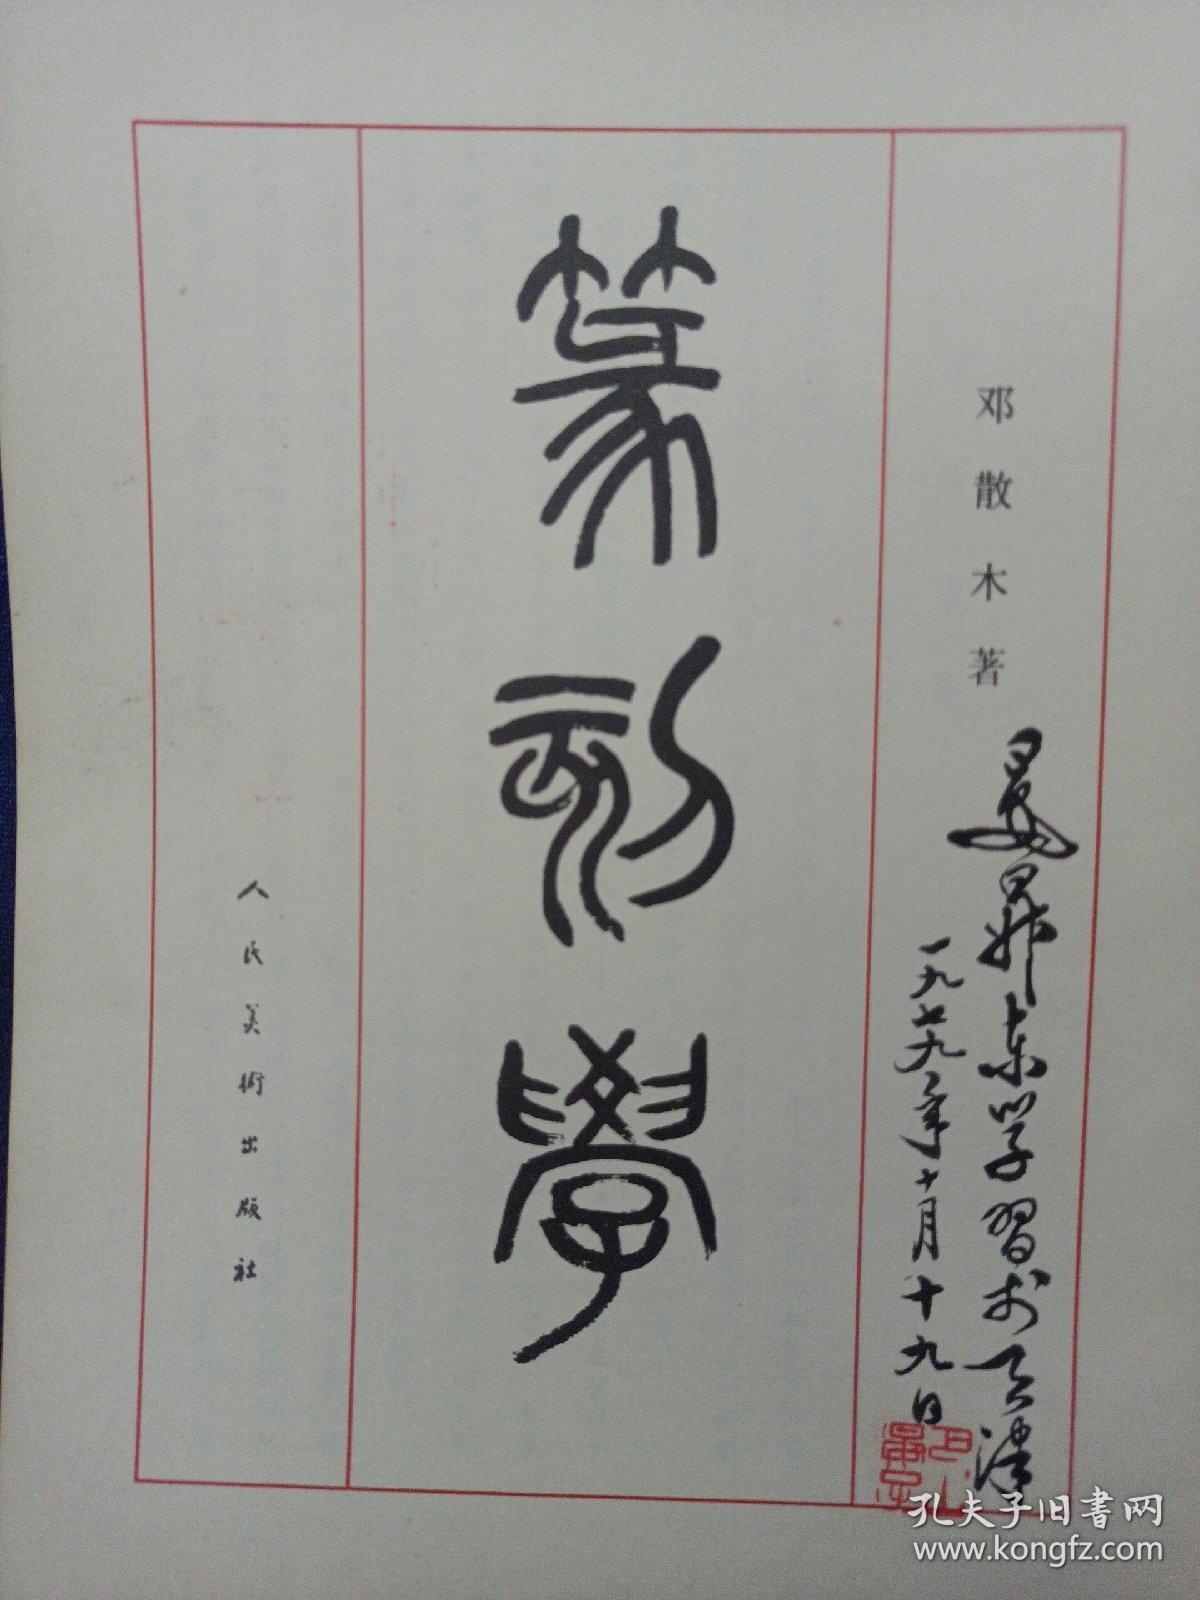 邓散木著
篆刻学
人民美術出版社
东学習于天津
一九七九年十月十九日
孔夫子旧書网
www.kongfz.com